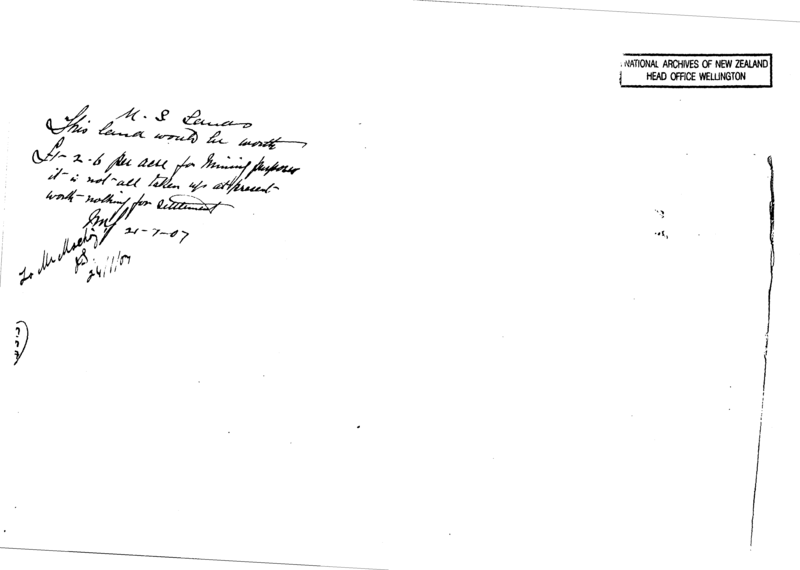 NATIONAL ARCHIVES OF NEW ZEALAND
HEAD OFFICE WELLINGTON
U. S Lands
This land would be worth
£1-2-6 per acre for mining purposes
it is not all taken up at present
worth nothing for settlement
21-7-07
To Mr
24/7/07